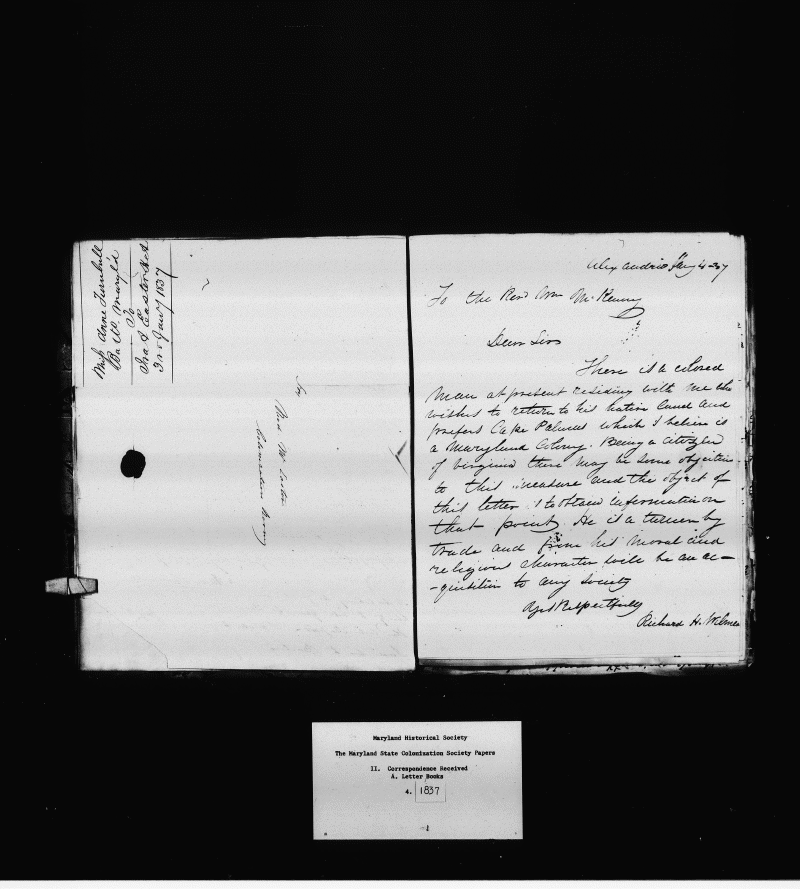 Miss Anne Turnbull
Balto. Maryld
To
Ira A Easter
3rd Jany 1837
To
Revd Mr Easter
Colonization Agency
Alexandria Jany 4 37
To the Revd Wm McKenny
Dear Sir
There is a colored
man at present residing with me who
wishes to return to his native land and
prefers Cape Palmas which I believe is
a Maryland Colony. Being a citizen
of Virginia there may be some objection
to this measure and the object of
this letter is to obtain information on
that point. He is a turner by
trade and from his moral and
religious character will be an ac-
-quisition to any society
Respectfully
Richard H. Wilmer
Maryland Historical Society
The Maryland State Colonization Society Papers
II. Correspondence Received
A. Letter Books
4. 1837
1